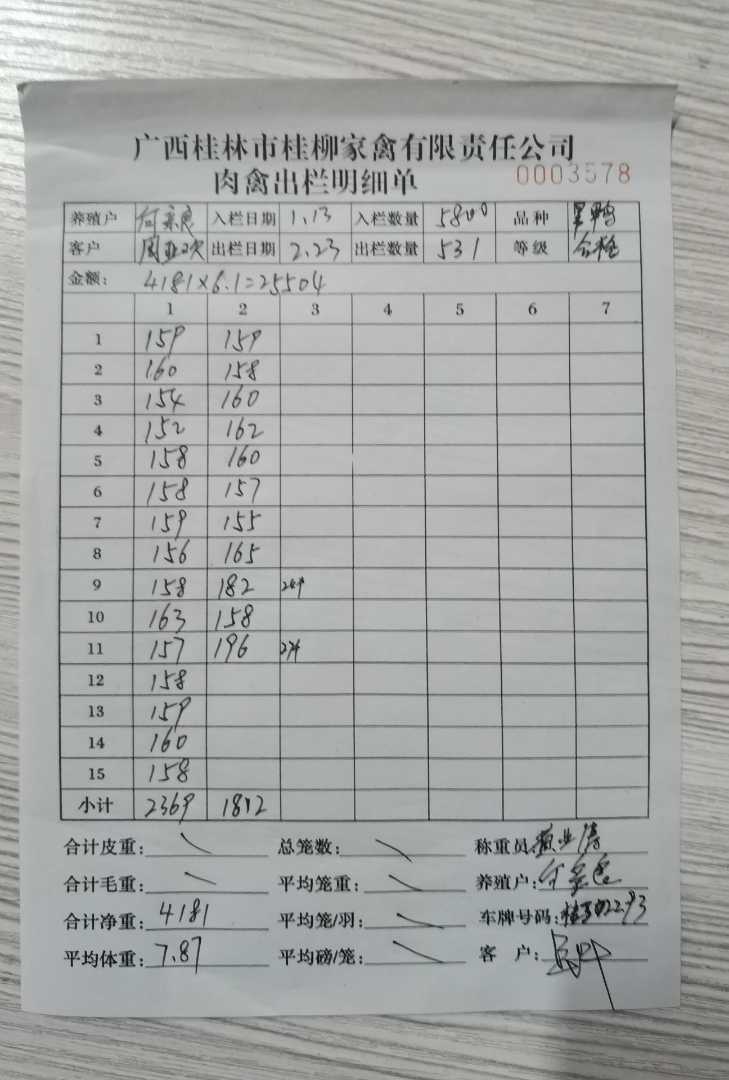 广西桂林市桂柳家禽有限责任公司
肉禽出栏明细单 0003578
养殖户 入栏日期 1.13 入栏数量 5800 品种
客户 出栏日期 2.23 出栏数量 531 等级 合格
金额: 4181×6.1=25504
1 2 3 4 5 6 7
1 159 159
2 160 158
3 154 160
4 152 162
5 158 160
6 158 157
7 159 155
8 156 165
9 158 182
10 163 158
11 157 196
12 158
13 159
14 160
15 158
小计 2369 1812
合计皮重: 总笼数: 称重员
合计毛重: 平均笼重: 养殖户:
合计净重: 4181 平均笼/羽: 车牌号码:
平均体重: 7.87 平均磅/笼: 客户: